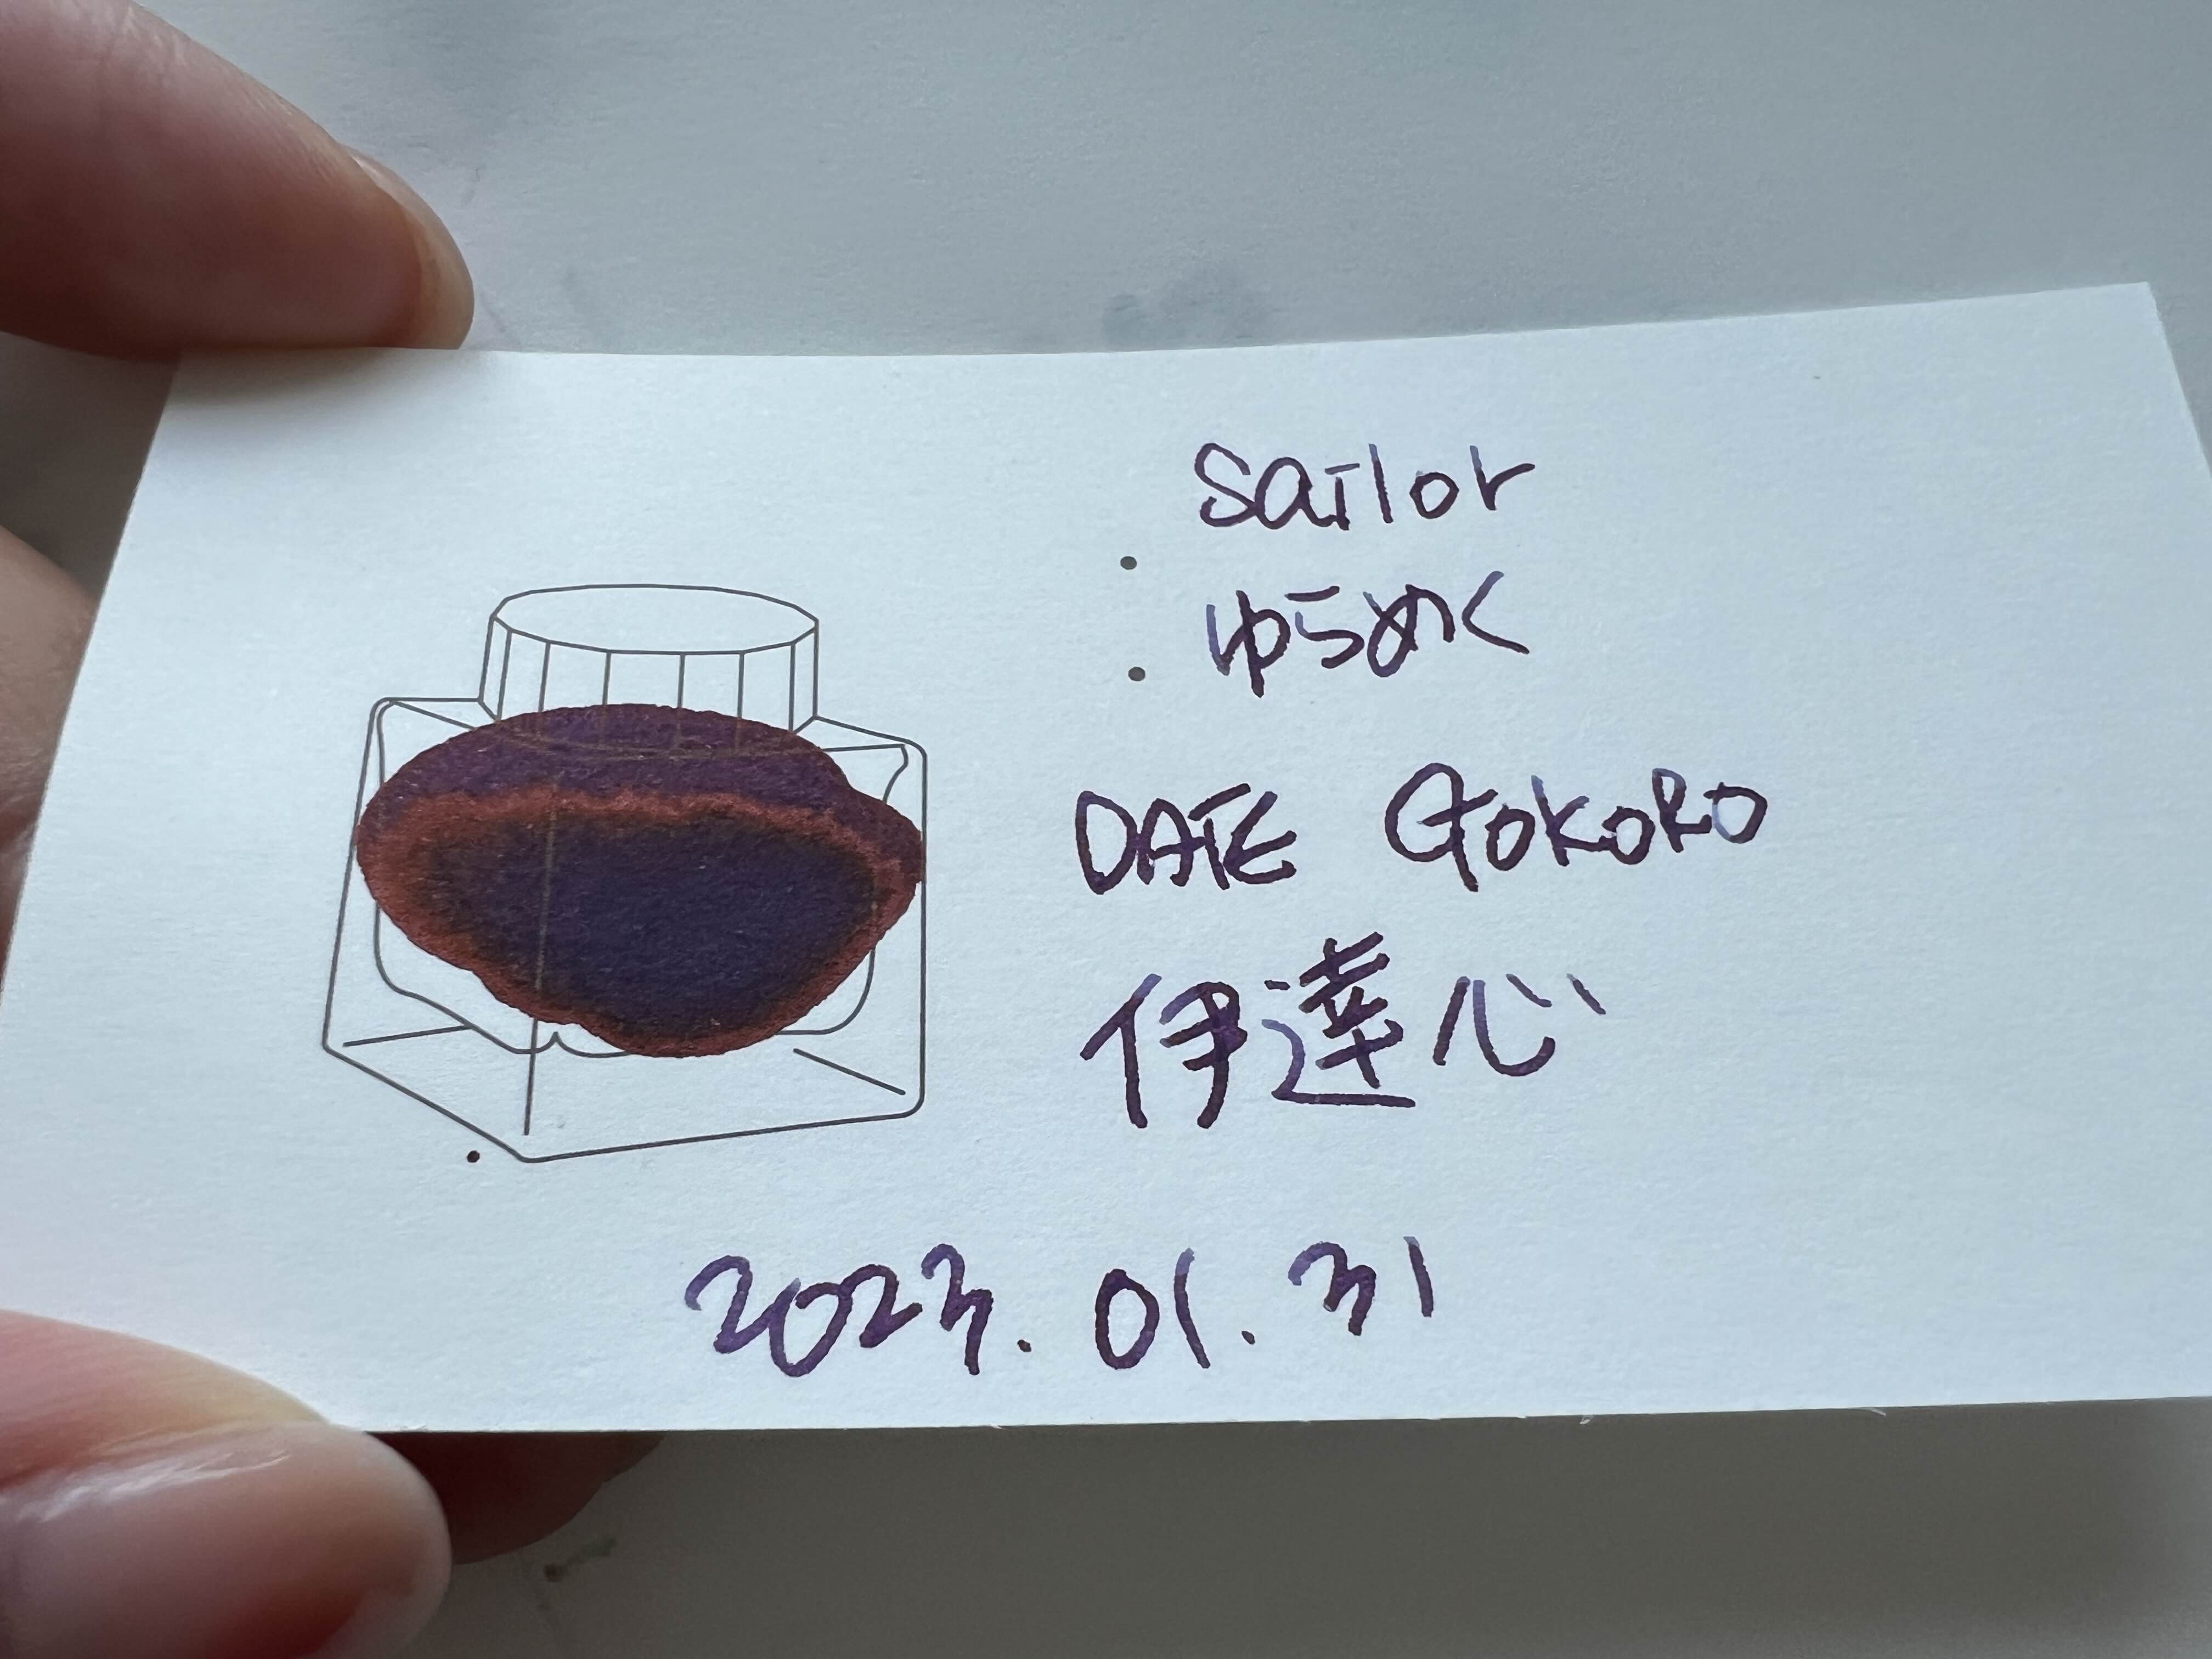 Sailor
ゆらめく
DATE GOKORO
伊達心
2023.01.31